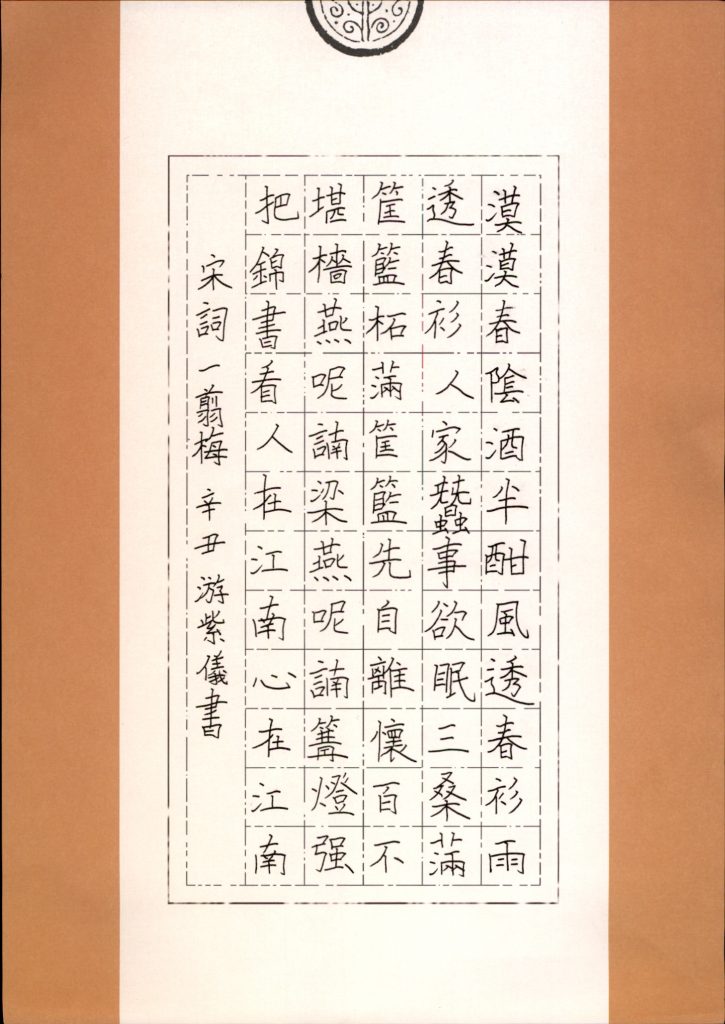 漠漠春陰酒半酣風透春衫雨
透春衫人家蠶事欲眠三桑滿
筐籃柘滿筐籃先自離懷百不
堪檣燕呢諵梁燕呢諵篝燈强
把錦書看人在江南心在江南
宋詞一翦梅 辛丑 游紫儀書